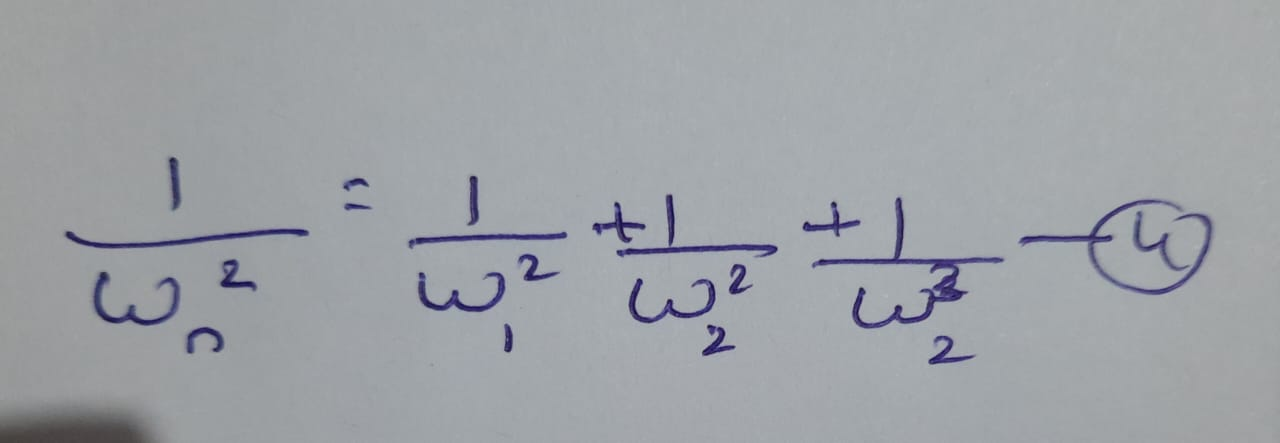 1/ωₙ² = 1/ω₁² + 1/ω₂² + 1/ω₂³ — ④